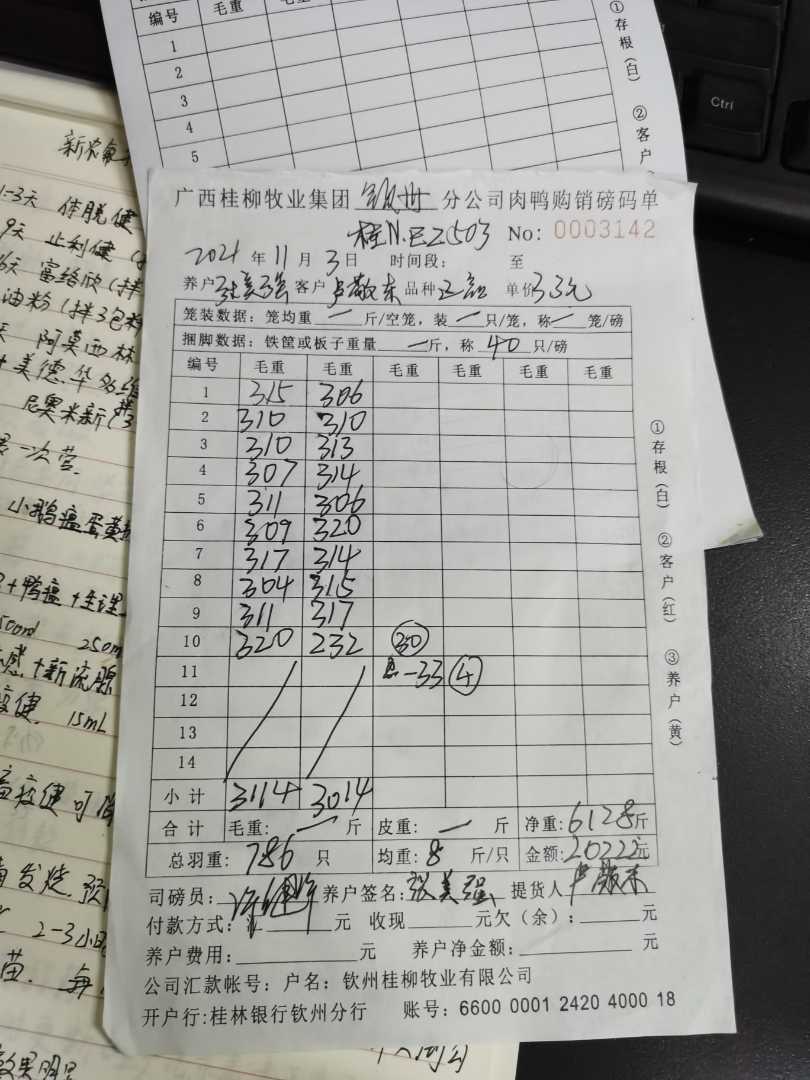 编号 毛重 毛重
1
2
3
4
5
①存根(白) ②客户
Ctrl
1-3天 体脱健
9天 止利健
富络欣(拌
油粉(拌3包粉
阿莫西林
美德.华多维
尼奥米新
一次营.
小鹅瘟蛋黄
+鸭瘟+生理
500ml 250m
感+新流腺
疫健. 15mL
疫健可
发烧.预
2-3小时
苗. 每
效果明显
广西桂柳牧业集团 钦州 分公司肉鸭购销磅码单
桂N.EZ503 No: 0003142
2021 年 11 月 3 日 时间段: 至
养户 张美强 客户 卢敬东 品种 单价 3.3元
笼装数据:笼均重 一 斤/空笼,装 一 只/笼,称 一 笼/磅
捆脚数据:铁筐或板子重量 一 斤,称 40 只/磅
编号 毛重 毛重 毛重 毛重 毛重 毛重
1 315 306
2 310 310
3 310 313
4 307 314
5 311 306
6 309 320
7 317 314
8 304 315
9 311 317
10 320 232 30
11 -33 4
12
13
14
小计 3114 3014
合计 毛重: 一 斤 皮重: 一 斤 净重: 6128斤
总羽重: 786 只 均重: 8 斤/只 金额: 20222元
司磅员: 养户签名: 张美强 提货人 卢敬东
付款方式: 元 收现 元欠(余): 元
养户费用: 元 养户净金额: 元
公司汇款帐号: 户名: 钦州桂柳牧业有限公司
开户行:桂林银行钦州分行 账号: 6600 0001 2420 4000 18
①存根(白) ②客户(红) ③养户(黄)